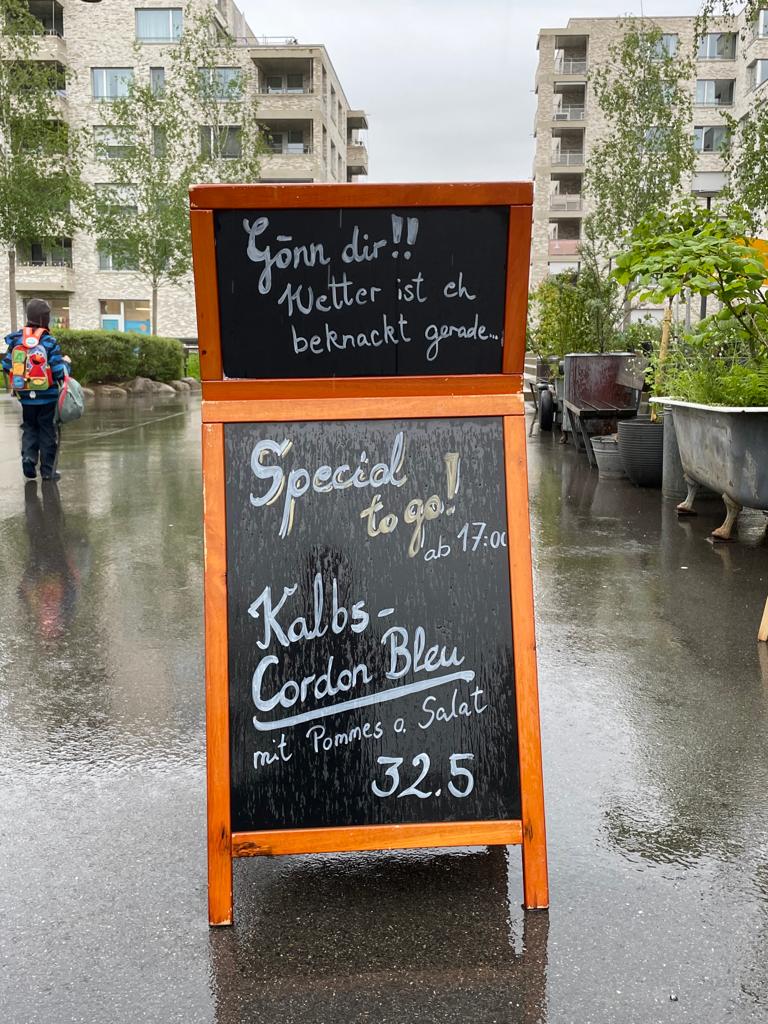 Gönn dir!!
Wetter ist eh
beknackt gerade...
Special
to go!
ab 17:00
Kalbs-
Cordon Bleu
mit Pommes o. Salat
32.5